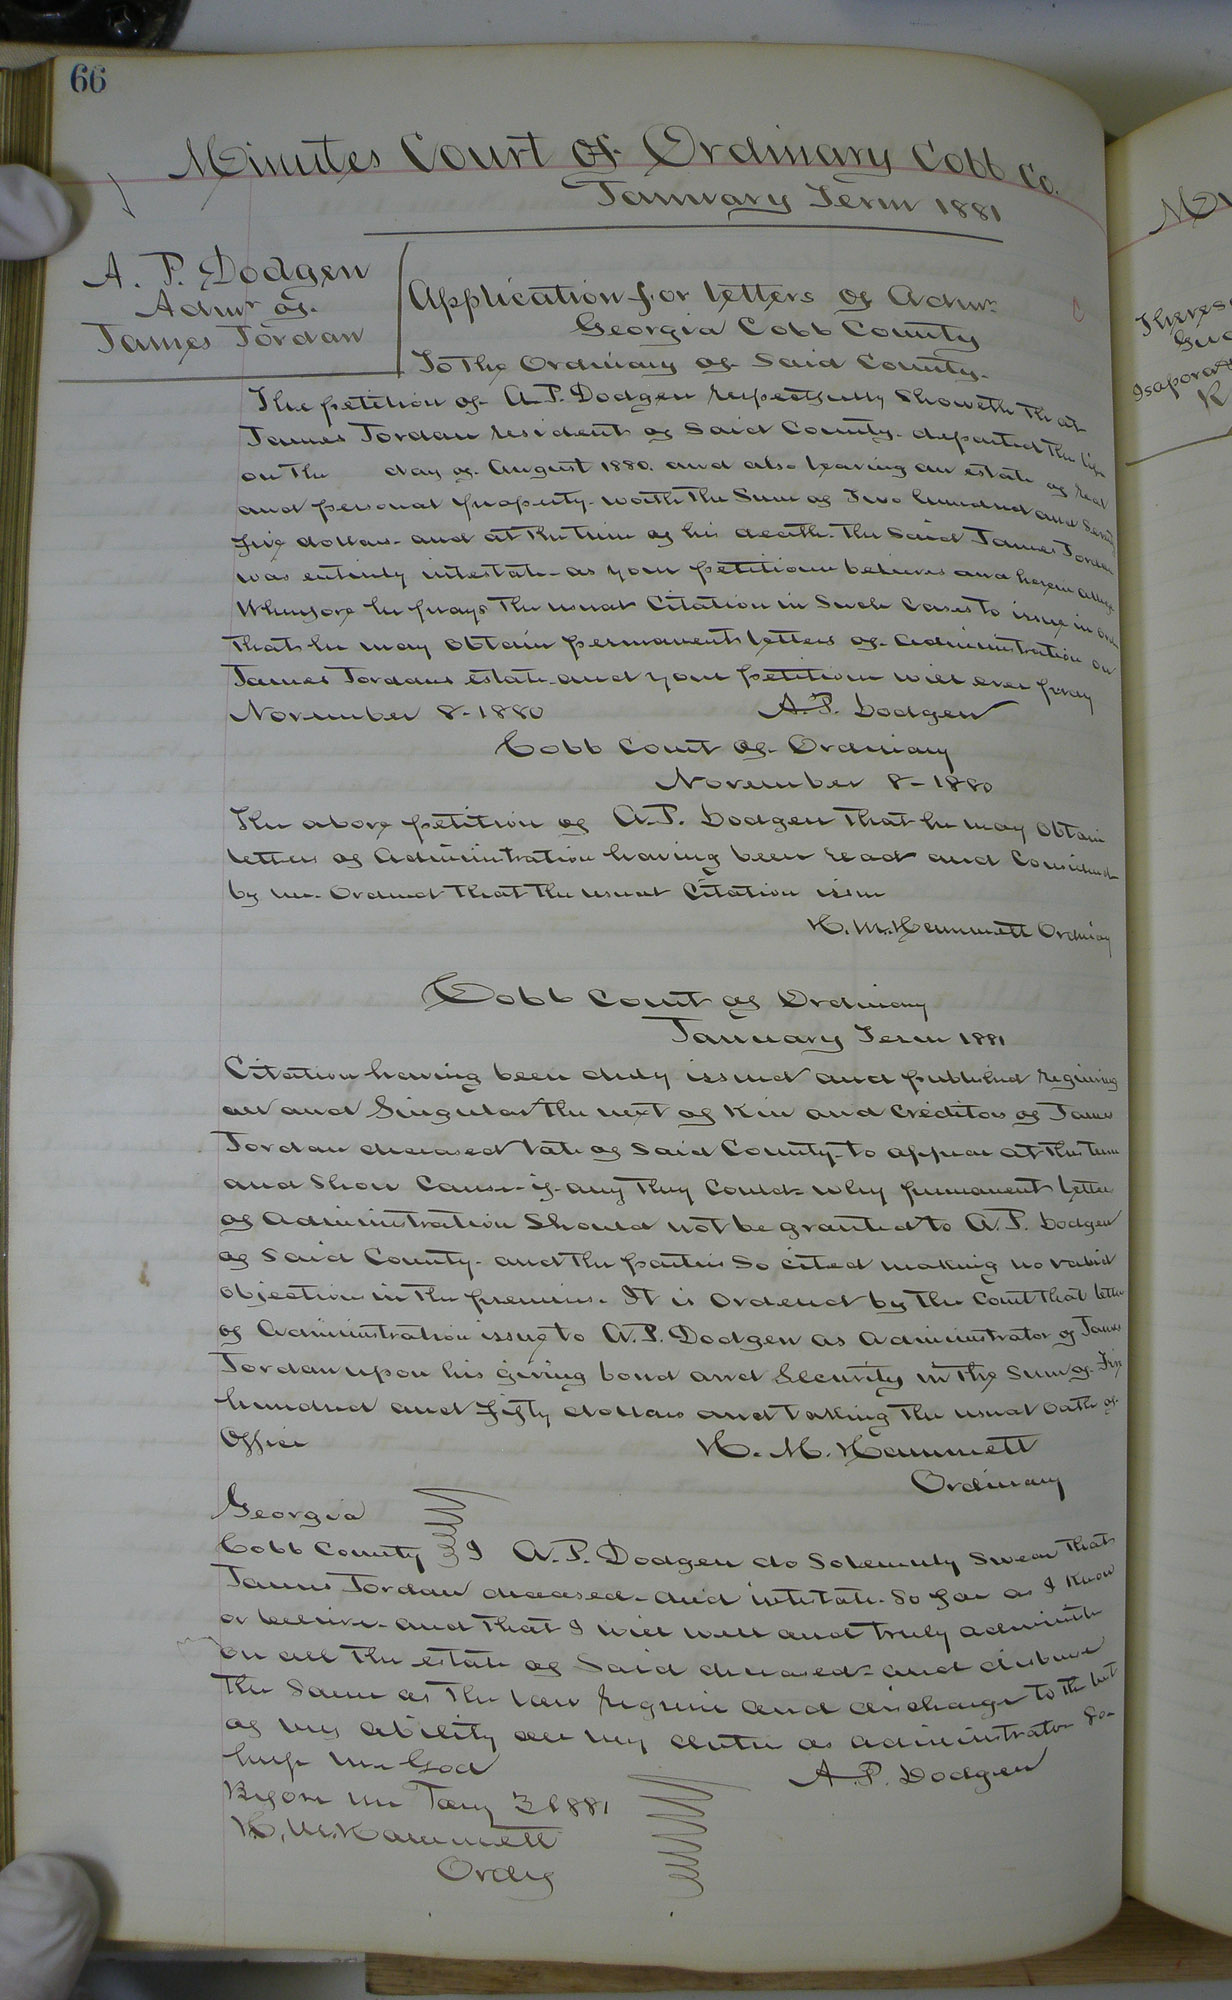 66
Minutes Court of Ordinary Cobb Co.
January Term 1881
A. P. Dodgen
Admr of
James Jordan
Application for letters of Admr.
Georgia Cobb County
To the Ordinary of Said County.
The petition of A. P. Dodgen respectfully Showeth that
James Jordan resident of Said County. departed this life
on the day of August 1880. and also leaving an estate of real
and personal property. worth the Sum of Two hundred and Seventy
five dollars. and at the time of his death. the Said James Jordan
was entirely intestate. as your petitioner believes and herein alleges
Wherefore he prays the usual Citation in Such Cases to issue in order
that he may obtain permanent letters of administration on
James Jordans estate. and your petitioner will ever pray
November 8. 1880 A. P. Dodgen
Cobb Court of Ordinary
November 8 - 1880
The above petition of A. P. Dodgen that he may obtain
letters of administration having been read and Considered
by me. Ordered that the usual Citation issue
H. M. Hammett Ordinary
Cobb Court of Ordinary
January Term 1881
Citation having been duly issued and published requiring
all and Singular the next of Kin and Creditors of James
Jordan deceased late of Said County. to appear at this term
and Show Cause. if any they Could. why permanent letters
of administration Should not be granted to A. P. Dodgen
of Said County. and the parties So cited making no valid
objection in the premises. It is ordered by the Court that letters
of Administration issue to A. P. Dodgen as Administrator of James
Jordan upon his giving bond and Security in the Sum of Five
hundred and fifty dollars and taking the usual oath of
Office H. M. Hammett
Ordinary
Georgia
Cobb County I A. P. Dodgen do Solemnly Swear that
James Jordan deceased. died intestate. So far as I Know
or believe. and that I will well and truly administer
on all the estate of Said deceased. and disburse
the Same as the law requires and discharge to the best
of my ability all my duties as administrator So
help me God A. P. Dodgen
Before me Jany 3d 1881
H. M. Hammett
Ordy